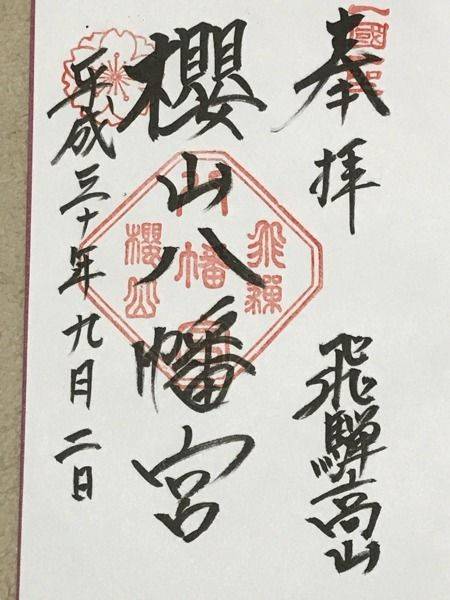 奉拝
飛騨高山
櫻山八幡宮
平成三十年九月二日
飛騨
八幡宮
櫻山